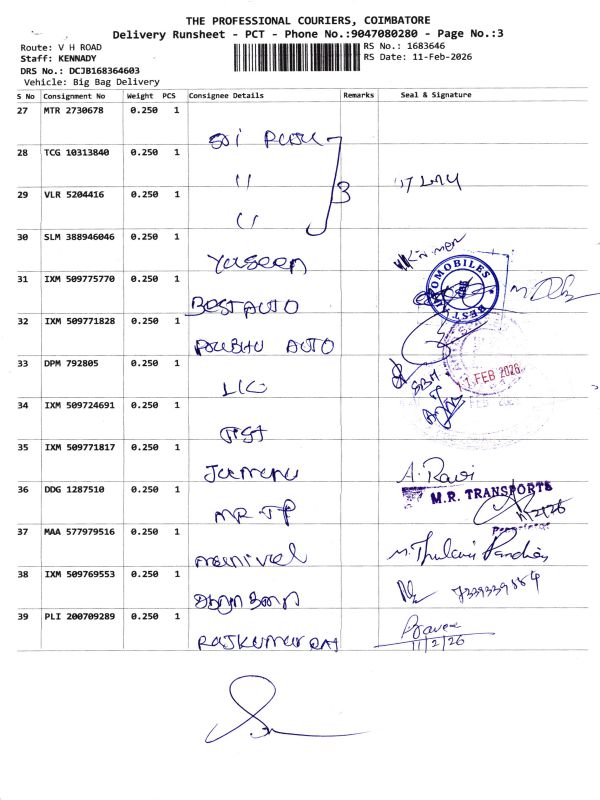 THE PROFESSIONAL COURIERS, COIMBATORE
Delivery Runsheet - PCT - Phone No.:9047080280 - Page No.:3
Route: V H ROAD
RS No.: 1683646
Staff: KENNADY
RS Date: 11-Feb-2026
DRS No.: DCJB168364603
Vehicle: Big Bag Delivery
S No Consignment No Weight PCS Consignee Details Remarks Seal & Signature
27 MTR 2730678 0.250 1
28 TCG 10313840 0.250 1 "
29 VLR 5204416 0.250 1 "
3
30 SLM 388946046 0.250 1 Yaseen
31 IXM 509775770 0.250 1 BEST AUTO
BEST AUTOMOBILES
32 IXM 509771828 0.250 1 AUTO
33 DPM 792805 0.250 1 LIC
11 FEB 2026
34 IXM 509724691 0.250 1
35 IXM 509771817 0.250 1
A. Ravi
36 DDG 1287510 0.250 1 MR TP
M.R. TRANSPORTS
37 MAA 577979516 0.250 1 manivel
M. Thulasi Pandian
38 IXM 509769553 0.250 1
39 PLI 200709289 0.250 1 RAJKUMAR
11/2/26